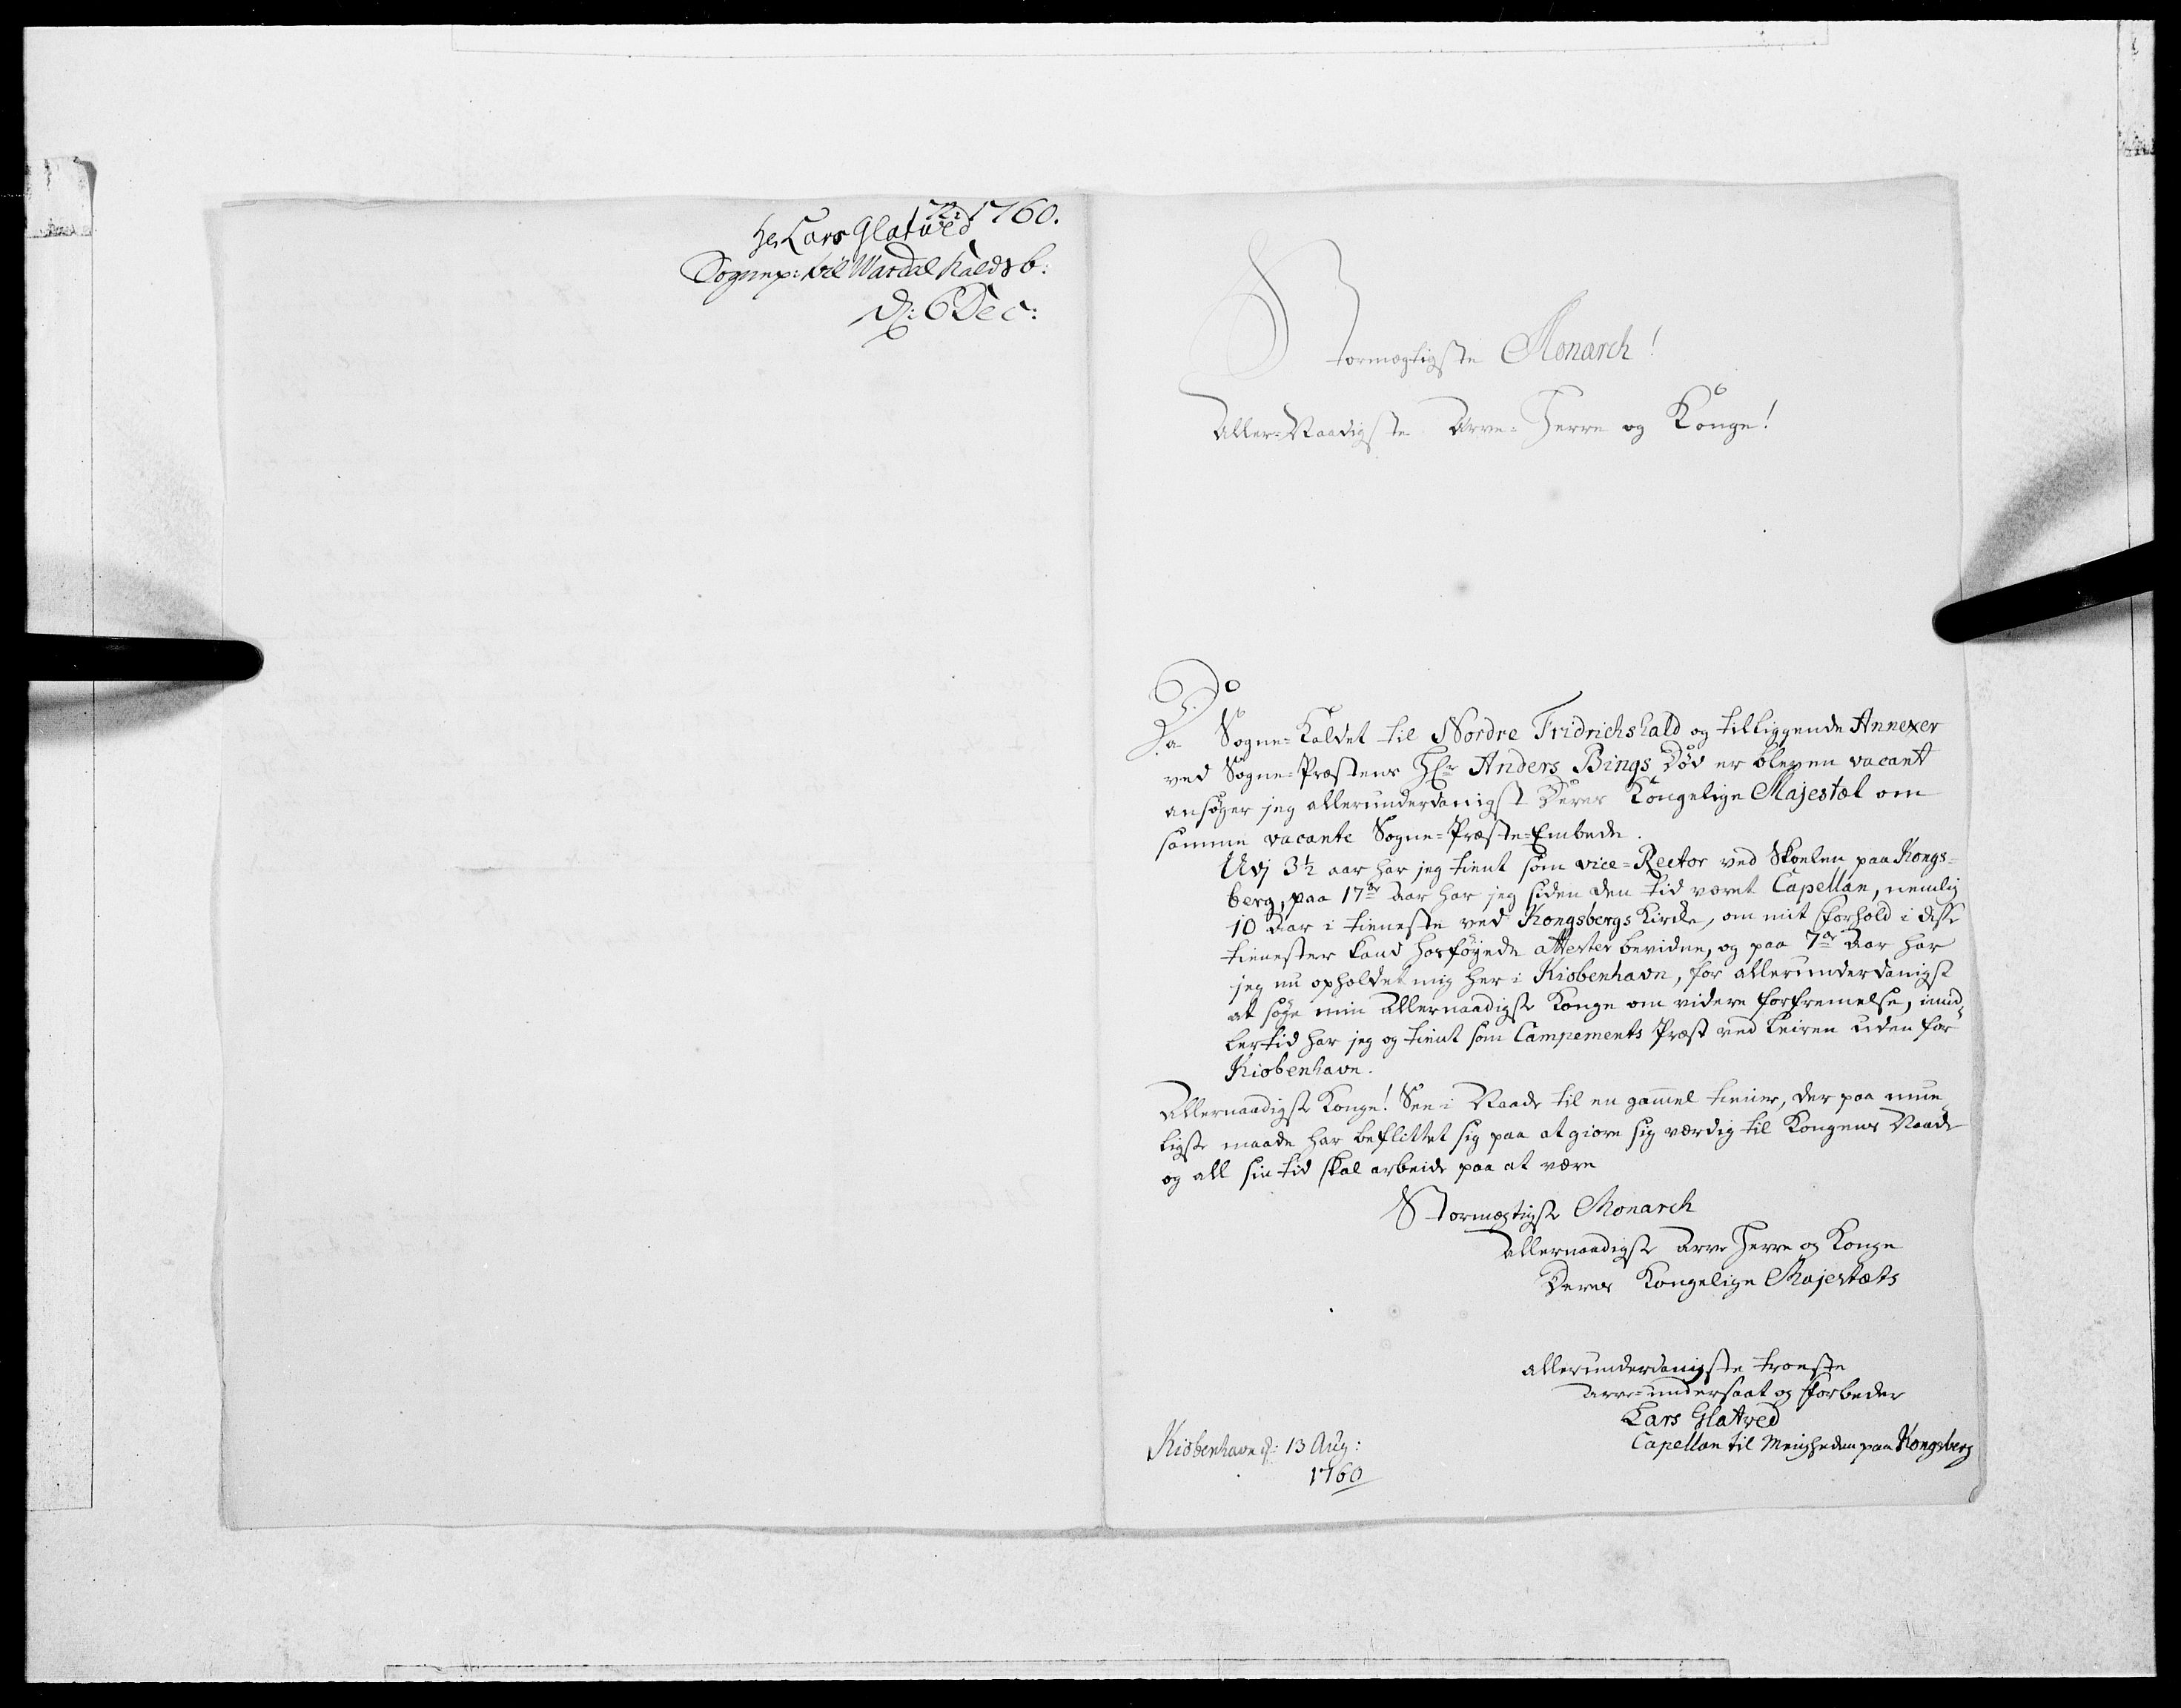 N: 1760.
Hr Lars Glatved
Sognep: til Wardal Kalds b:
d: 6 Dec:
Stormægtigste Monarch!
Aller-Naadigste Arve-Herre og Konge!
Da Sogne-Kaldet til Nordre Fridrichshald og tilliggende Annexer
ved Sogne-Præstens Hr Anders Bings Død er bleven vacant
ansøger jeg allerunderdanigst Deres Kongelige Majestæt om
samme vacante Sogne-Præste-Embede.
Udj 3½ aar har jeg tient som vice-Rector ved Skoelen paa Kongs-
berg, paa 17de Aar har jeg siden den tid været Capellan, nemlig
10 Aar i tieneste ved Kongsbergs Kirke, om mit Forhold i disse
tienester kand hosføyede attester bevidne, og paa 7de Aar har
jeg nu opholdet mig her i Kiøbenhavn, for allerunderdanigst
at søge min Allernaadigste Konge om videre forfremelse, imid-
lertid har jeg og tient som Campements Præst ved Leiren uden for
Kiøbenhavn.
Allernaadigste Konge! See i Naade til en gammel tiener, der paa mue-
ligste maade har beflittet sig paa at giøre sig værdig til Kongens Naade
og all sin tid skal arbeide paa at være
Stormægtigste Monarch
allernaadigste Arve Herre og Konge
Deres Kongelige Majestæts
allerunderdanigste troeste
arve-undersaat og Forbeder
Lars Glatved
Capellan til Menigheden paa Kongsberg
Kiøbenhavn d: 13 Aug:
1760